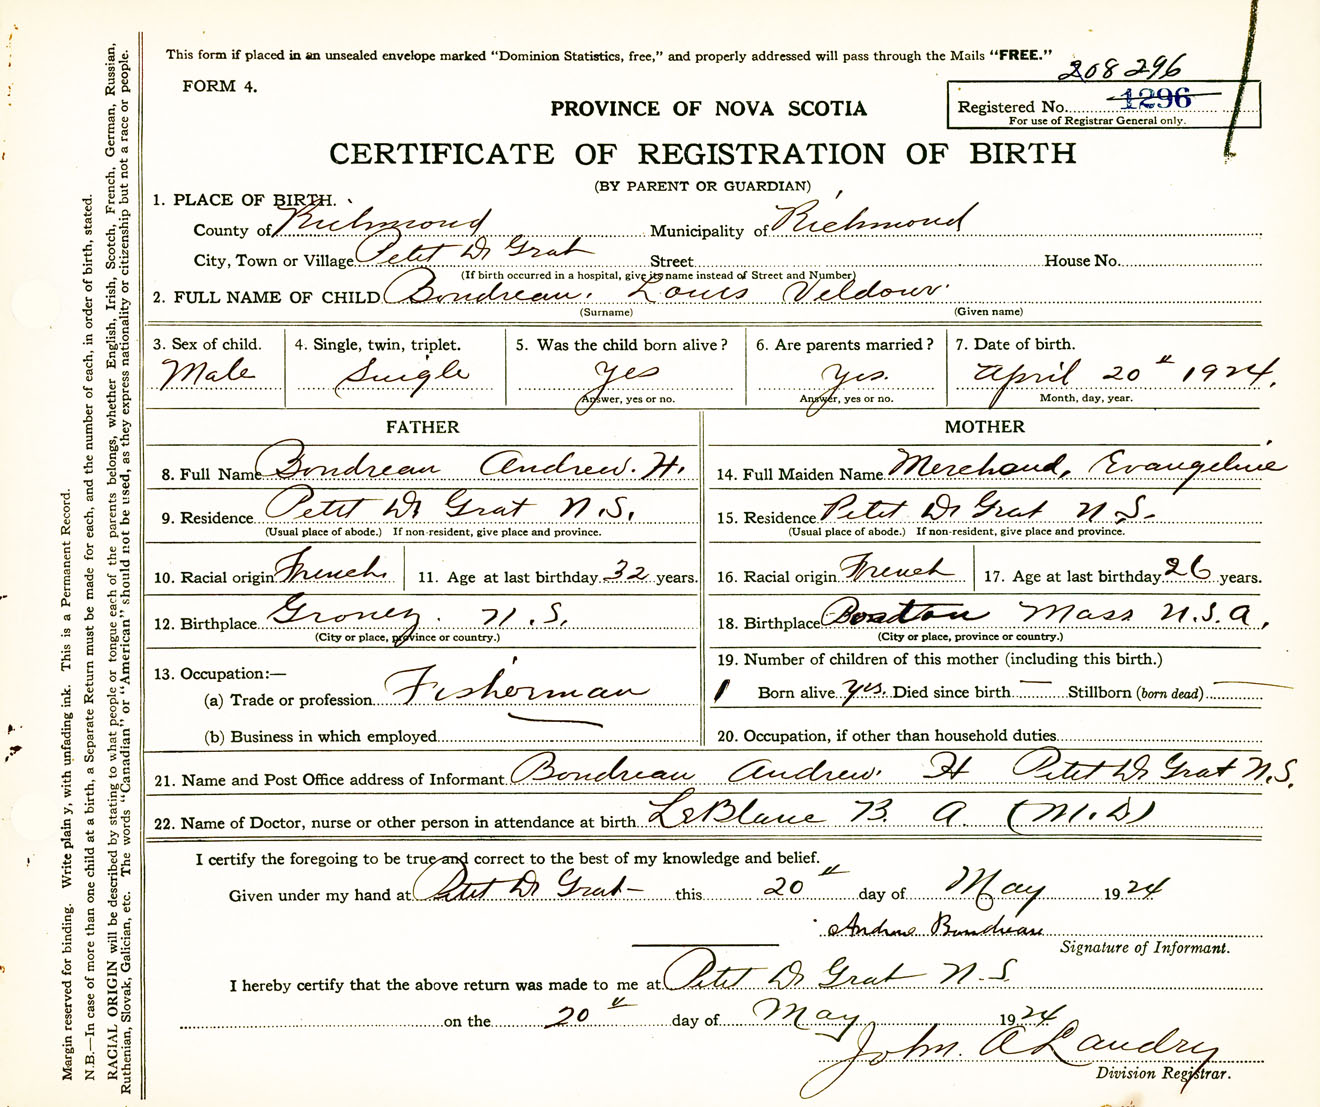 This form if placed in an unsealed envelope marked "Dominion Statistics, free," and properly addressed will pass through the Mails "FREE."
208 296
FORM 4.
PROVINCE OF NOVA SCOTIA
Registered No. 1296
For use of Registrar General only.
CERTIFICATE OF REGISTRATION OF BIRTH
(BY PARENT OR GUARDIAN)
1. PLACE OF BIRTH.
County of Richmond Municipality of Richmond
City, Town or Village Petit De Grat Street House No.
(If birth occurred in a hospital, give its name instead of Street and Number)
2. FULL NAME OF CHILD Boudreau. Louis
(Surname) (Given name)
3. Sex of child. 4. Single, twin, triplet. 5. Was the child born alive? 6. Are parents married? 7. Date of birth.
Male Single Yes Yes. April 20th 1924.
Answer, yes or no. Answer, yes or no. Month, day, year.
FATHER MOTHER
8. Full Name Boudreau Andrew. H. 14. Full Maiden Name Merchand, Evangeline
9. Residence Petit De Grat N.S. 15. Residence Petit De Grat N.S.
(Usual place of abode.) If non-resident, give place and province. (Usual place of abode.) If non-resident, give place and province.
10. Racial origin French 11. Age at last birthday 32 years. 16. Racial origin French 17. Age at last birthday 26 years.
12. Birthplace N.S. 18. Birthplace Boston Mass U.S.A.
(City or place, province or country.) (City or place, province or country.)
13. Occupation:— 19. Number of children of this mother (including this birth.)
(a) Trade or profession Fisherman 1 Born alive yes. Died since birth — Stillborn (born dead) —
(b) Business in which employed — 20. Occupation, if other than household duties
21. Name and Post Office address of Informant Boudreau Andrew. H Petit De Grat N.S.
22. Name of Doctor, nurse or other person in attendance at birth LeBlanc B. A. (M.D)
I certify the foregoing to be true and correct to the best of my knowledge and belief.
Given under my hand at Petit De Grat this 20th day of May 1924
Andrew Boudreau
Signature of Informant.
I hereby certify that the above return was made to me at Petit De Grat N.S.
on the 20th day of May 1924
John. A Landry
Division Registrar.
Margin reserved for binding. Write plainy, with unfading ink. This is a Permanent Record.
N.B.—In case of more than one child at a birth, a Separate Return must be made for each, and the number of each, in order of birth, stated.
RACIAL ORIGIN will be described by stating to what people or tongue each of the parents belongs, whether English, Irish, Scotch, French, German, Russian,
Ruthenian, Slovak, Galician, etc. The words "Canadian" or "American" should not be used, as they express nationality or citizenship but not a race or people.